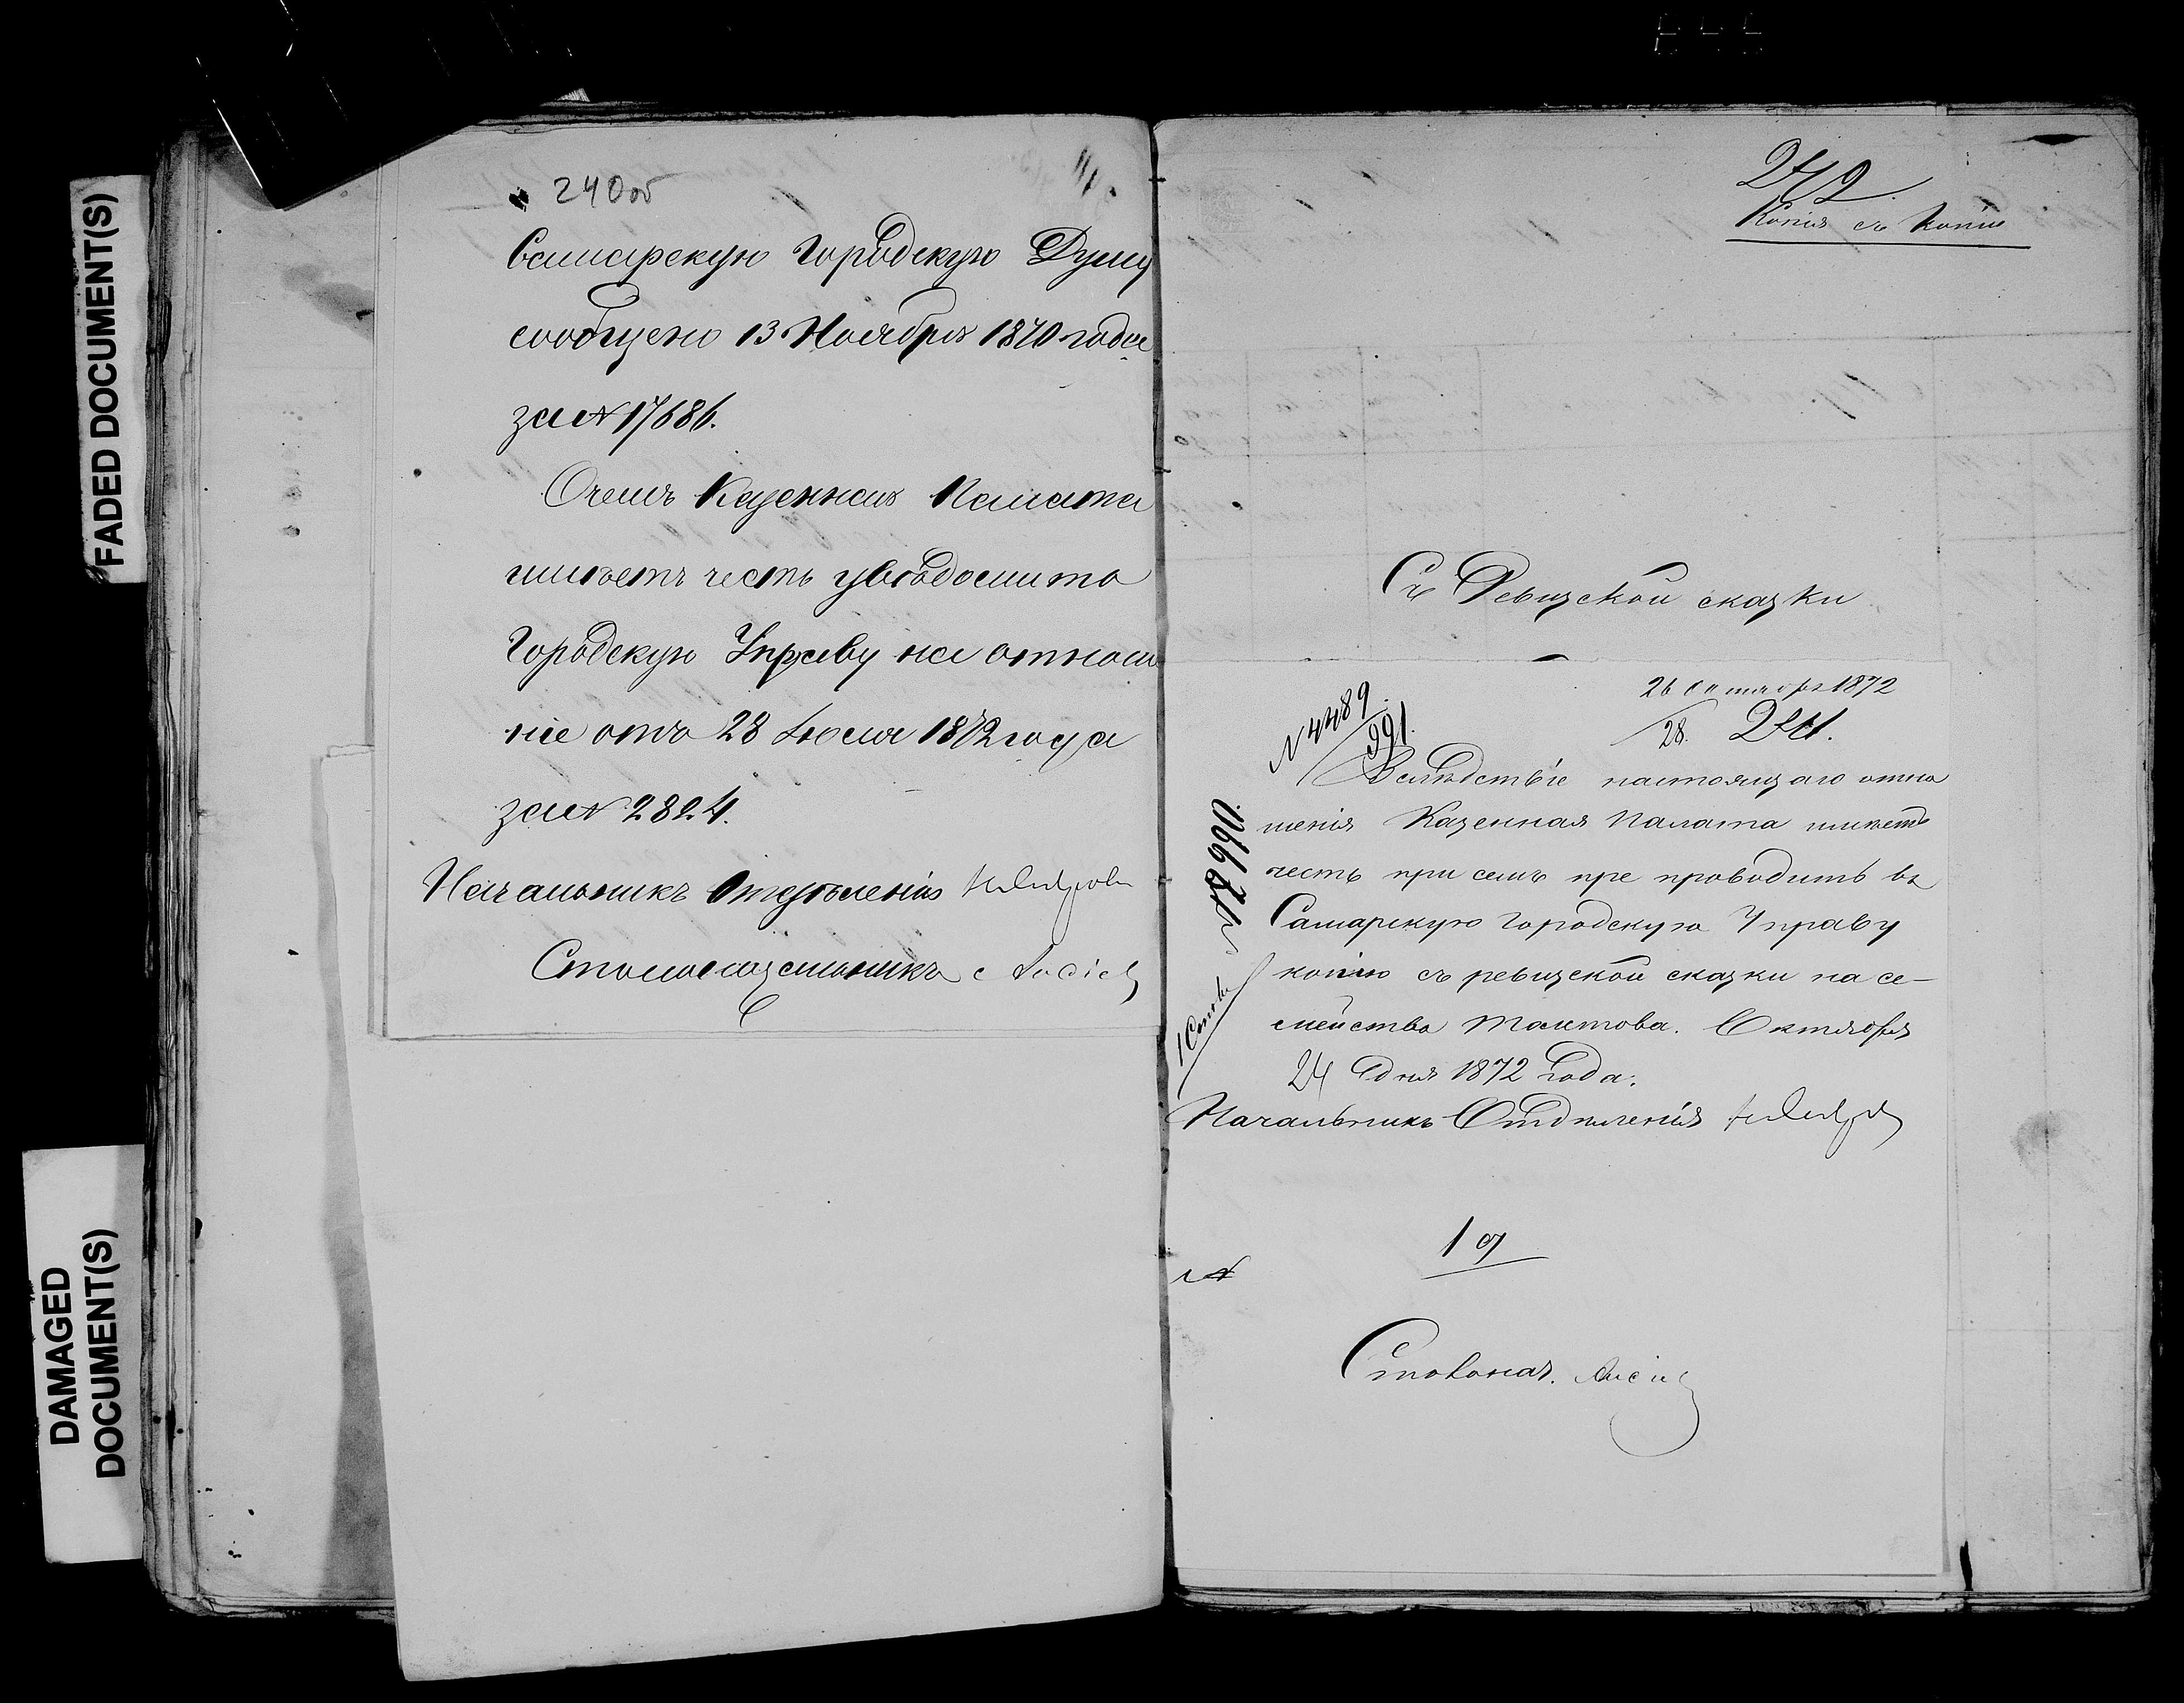 FADED DOCUMENT(S)
DAMAGED
DOCUMENT(S)
240 об
Самарскую Городскую Думу
сообщено 13 Ноября 1870 года
за № 17686.
О чемъ Казенная Палата
имѣетъ честь увѣдомить
Городскую Управу на отноше
ніе отъ 28 Іюля 1872 года
за № 2824.
Начальникъ Отдѣленія
Столоначальникъ
242.
Копія съ Копіи
Съ Ревизской сказки
26 Октября 1872
28. 241.
№ 4489
991.
Вслѣдствіе настоящаго отно
шенія Казенная Палата имѣетъ
честь при семъ препроводить въ
Самарскую Городскую Управу
копію съ ревизской сказки на се-
мейство Толстова. Октября
24 дня 1872 года.
Начальникъ Отдѣленія
№
Столонач.